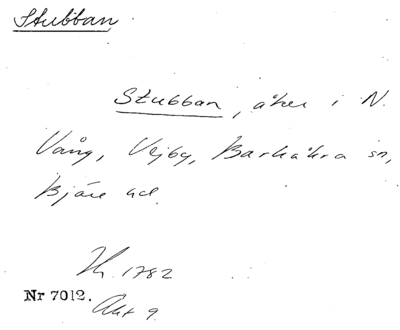 Stubban
Stubban, åker i N.
Vång, Vejby, Barkåkra sn,
Bjäre hd.
Lh. 1782
Nr 7012. Akt 9